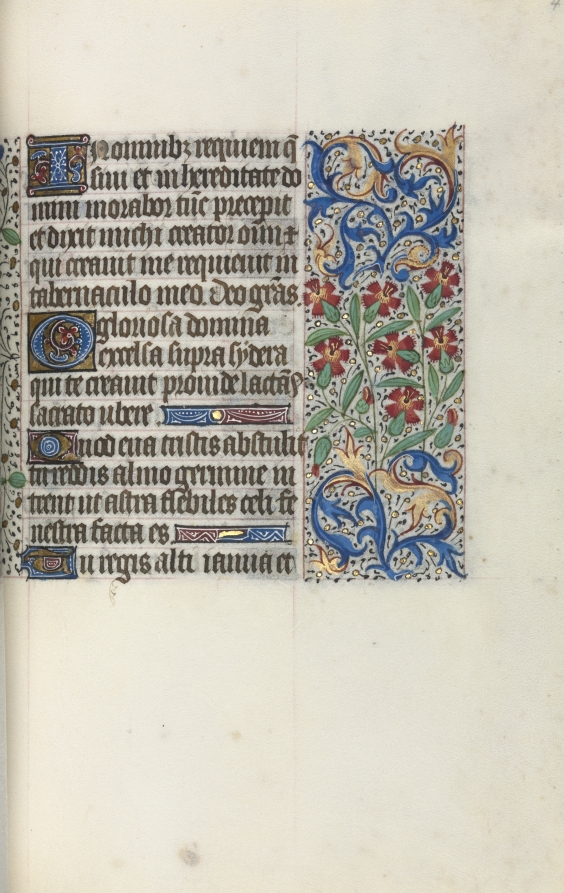 In omnibz requiem q̄
siui et in hereditate do
mini morabor tūc precepit
et dixit michi creator oīm ⁊
qui creauit me requieuit in
tabernaculo meo. Deo grās
O gloriosa domina
excelsa supra sydera
qui te creauit prouide lactasti
sacrato ubere
Quod eua tristis abstulit
tu reddis almo germine in
trent ut astra flebiles celi fe
nestra facta es
Tu regis alti ianua et
4